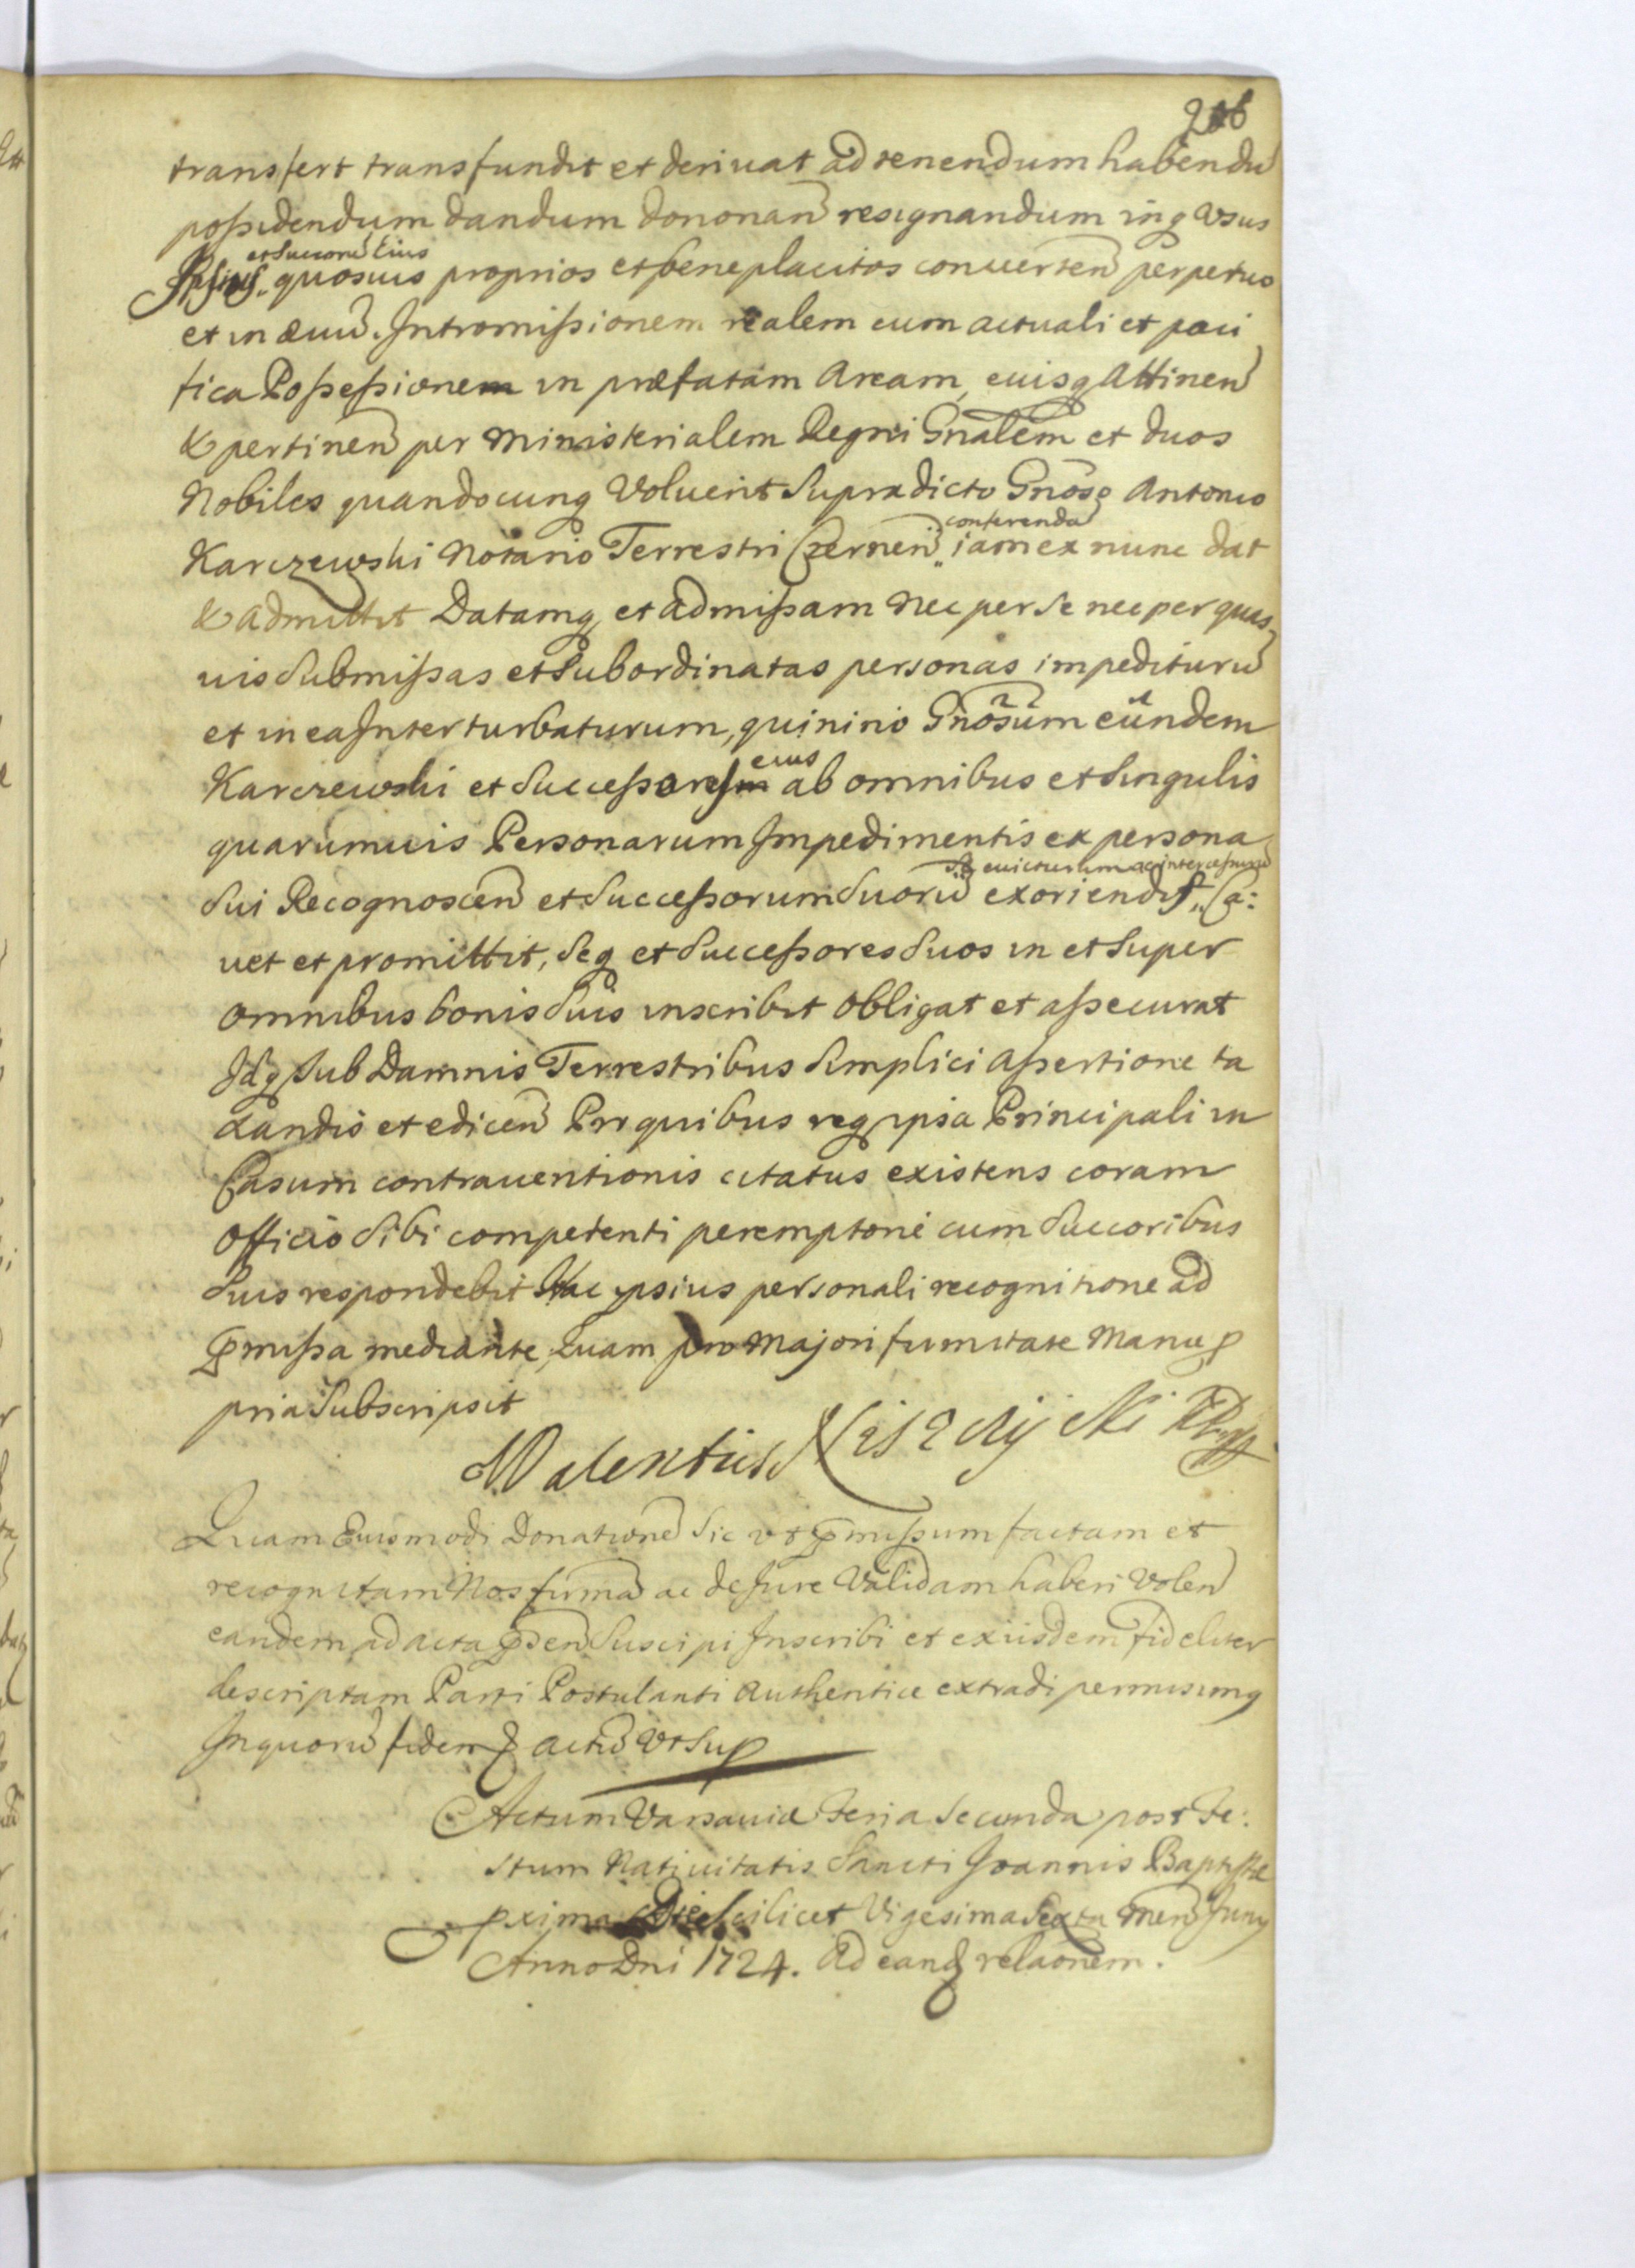 206
transfert transfundit et deriuat ad tenendum habendũ
possidendum dandum dononañ resignandum inq Vsus
et Succorũ Eius
Ipsius quosuis proprios et beneplacitos conuerteñ perpetuo
et in æuũ. Intromissionem realem cum actuali et paci
fica Possessionem in præfatam Aream, euisq Attineñ
& pertineñ per Ministerialem Regni Gnãlem et duos
Nobiles quandocunq Voluerit Supradicto Gnõso Antonio
conferendã
Karczewski Notario Terrestri Czerneñ iam ex nunc dat
& admittit Datamq et admissam Nec per se nec per quas
uis Submissas et Subordinatas personas impediturũ
et in ea Interturbaturum, quinimo Gnõsum eundem
eius
Karczewski et Successores ab omnibus et Singulis
quarumuis Personarum Impedimentis ex persona
Se euicturum ac intercessurũ
Sui Recognosceñ et Successorum Suorũ exoriendis, Ca:
uet et promittit, Seq et Successores Suos in et Super
omnibus bonis Suis inscribit obligat et assecurat
Idq sub Damnis Terrestribus Simplici Assertione ta
xandis et ediceñ Pro quibus req ipsa Principali in
Casum contrauentionis citatus existens coram
Officio Sibi competenti peremptorie cum Succoribus
Suis respondebit Hac ipsius personali recognitione ad
pmissa mediante, Quam pro Majori firmitate Manu p
pria Subscripsit
Quam Euismodi Donationẽ Sic vt pmissum factam et
recognitam Nos firmã ac de Jure Validam haberi Voleñ
eandem ad acta pñseñ Suscipi Inscribi et ex iisdem fideliter
descriptam Parti Postulanti Authentice extradi permisimq
In quorũ fidem & Actũ Vt Sup
Actum Varsauiæ Feria Secunda post Fe:
stum Natiuitatis Sancti Joannis Baptistæ
pxima Die Scilicet Vigesima Sexta Meñ Juny
Anno Dni 1724. Ad eand relaõnem.